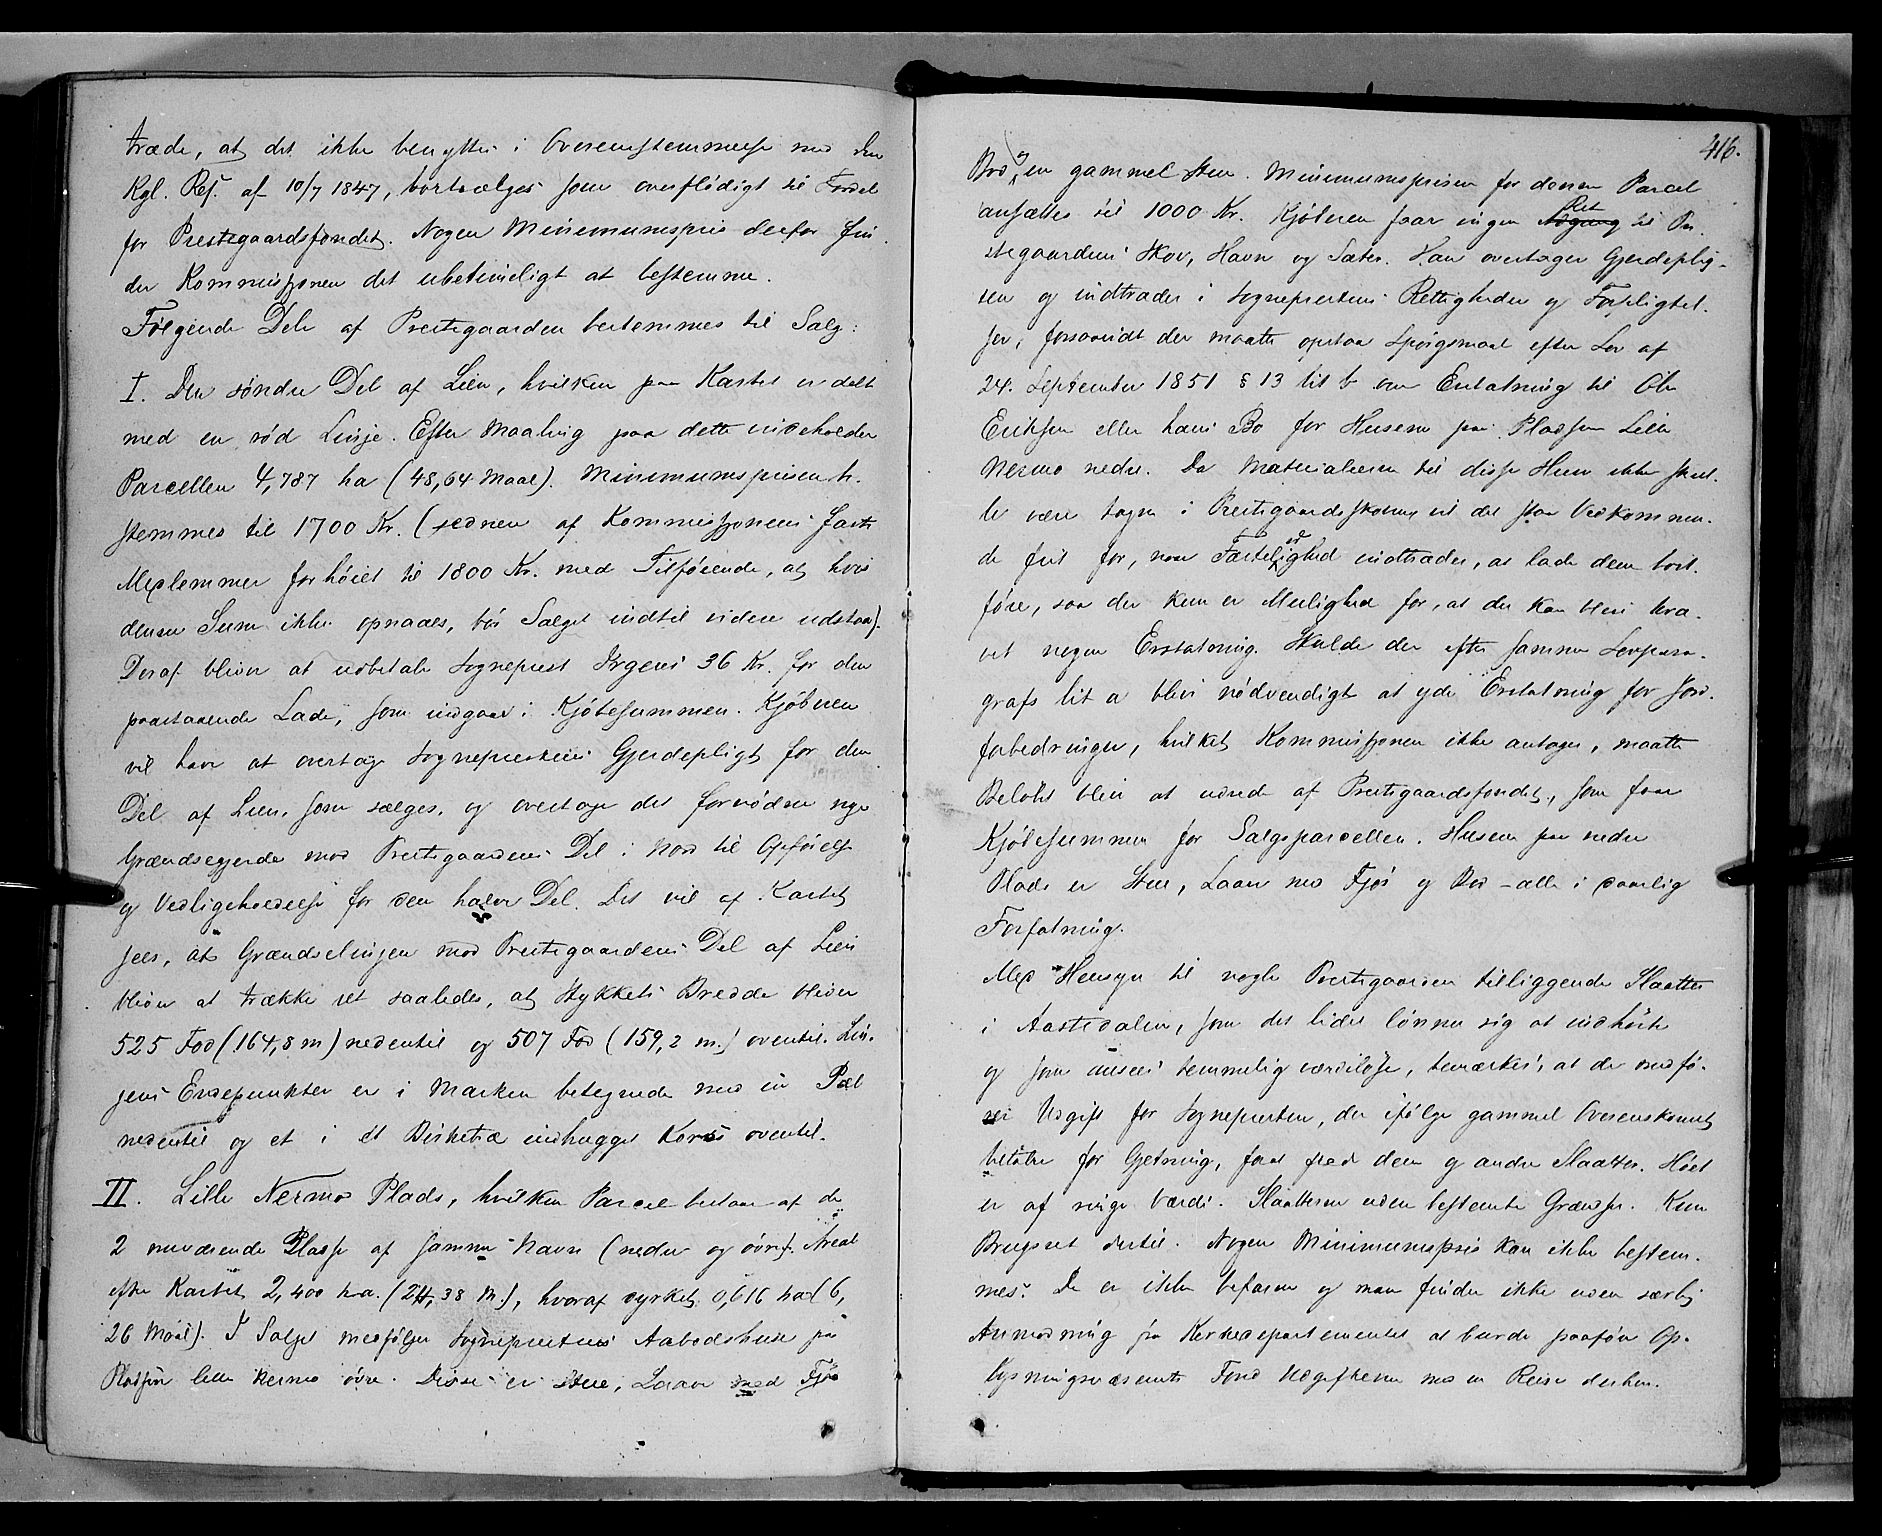 træde, at det ikke benyttes i Overensstemmelse med den
Kgl. Res. af 10/7 1847, bortsælges som overflødigt til Fordel
for Prestegaardsfondet. Nogen Minimumspris derfor fin-
der Kommissjonen det ubetimeligt at bestemme.
Følgende Dele af Prestegaarden bestemmes til Salg:
I. Den søndre Del af Lien, hvilken paa Kartet er delt
med en rød Linje. Efter Maaling paa dette indeholder
Parcellen 4,787 ha (48,64 Maal). Minimumsprisen be-
stemmes til 1700 Kr. (senere af Kommissjonens faste
Medlemmer forhøiet til 1800 Kr. med Tilføiende, at hvis
denne Sum ikke opnaaes, bør Salget indtil videre udstaa).
Deraf bliver at udbetale Sogneprest Irgens 36 Kr. for den
paastaaende Lade, som indgaar i Kjøbesummen. Kjøberen
vil have at overtage Sogneprestens Gjerdepligt for den
Del af Lien, som sælges, og overtage det fornødne nye
Grændsegjerde mod Prestegaardens Del i Nord til Opførelse
og Vedligeholdelse for den halve Del. Det vil af Kartet
sees, at Grændselinjen mod Prestegaardens Del af Lien
bliver at trække ret saaledes, at Stykkets Bredde bliver
525 Fod (164,8 m) nedentil og 507 Fod (159,2 m.) oventil. Lin-
jens Endepunkter er i Marken betegnede med en Pæl
nedentil og et i et Birketræ indhugget Kors oventil.
II. Lille Nermo Plads, hvilken Parcel bestaar af de
2 nuværende Pladse af samme Navn (nedre og øvre). Areal
efter Kartet 2,400 ha. (24,38 M.), hvoraf dyrket 0,616 ha (6,
26 Maal). I Salget medfølger Sogneprestens Aabodshuse paa
Pladsen lille Nermo øvre. Disse er Stue, Laave med Fjøs
416.
Bod og en gammel Sten. Minimumsprisen for denne Parcel
ansættes til 1000 Kr. Kjøberen faar ingen Adgang Ret til Pre-
stegaardens Skov, Havn og Sæter. Han overtager Gjerdeplig-
ten og indtræder i Sogneprestens Rettigheder og Forpligtel-
ser, forsaavidt der maatte opstaa Spørgsmaal efter Lov af
24. September 1851 § 13 lit b om Erstatning til Ole
Eriksen eller hans Bo for Husene paa Pladsen Lille
Nermo nedre. Da Materialierne til disse Huse ikke skul-
le være tagne i Prestegaardsskoven vil det staa Vedkommen-
de frit for, naar Fardeligheid indtræder, at lade dem bort-
føre, saa der kun er Mulighed for, at der kan blive kræ-
vet nogen Erstatning. Skulde der efter samme Lovpara-
grafs lit a blive nødvendigt at yde Erstatning for Jord-
forbedringer, hvilket Kommissjonen ikke antager, maatte
Beløbet blive at udrede af Prestegaardsfondet, som faar
Kjøbesummen for Salgsparcellen. Husene paa nedre
Plads er Stue, Laave med Fjøs og Bod – alle i daarlig
Forfatning.
Med Hensyn til nogle Prestegaarden tilliggende Slaatter
i Aastedalen, som det lidet lønner sig at indhøste
og som ansees temmelig værdiløse, bemærkes, at de medfø-
rer Udgift for Sognepresten, der ifølge gammel Overenskomst
betaler for Gjetning, for at frede dem og andre Slaatter. Høet
er af ringe Værdi. Slaatterne uden bestemte Grændser. Kun
Brugsret dertil. Nogen Minimumspris kan ikke bestem-
mes. De er ikke befarne og man finder ikke uden særlig
Anmodning fra Kirkedepartementet at burde paaføre Op-
lysningsvæsenets Fond Udgifterne med en Reise derhen.